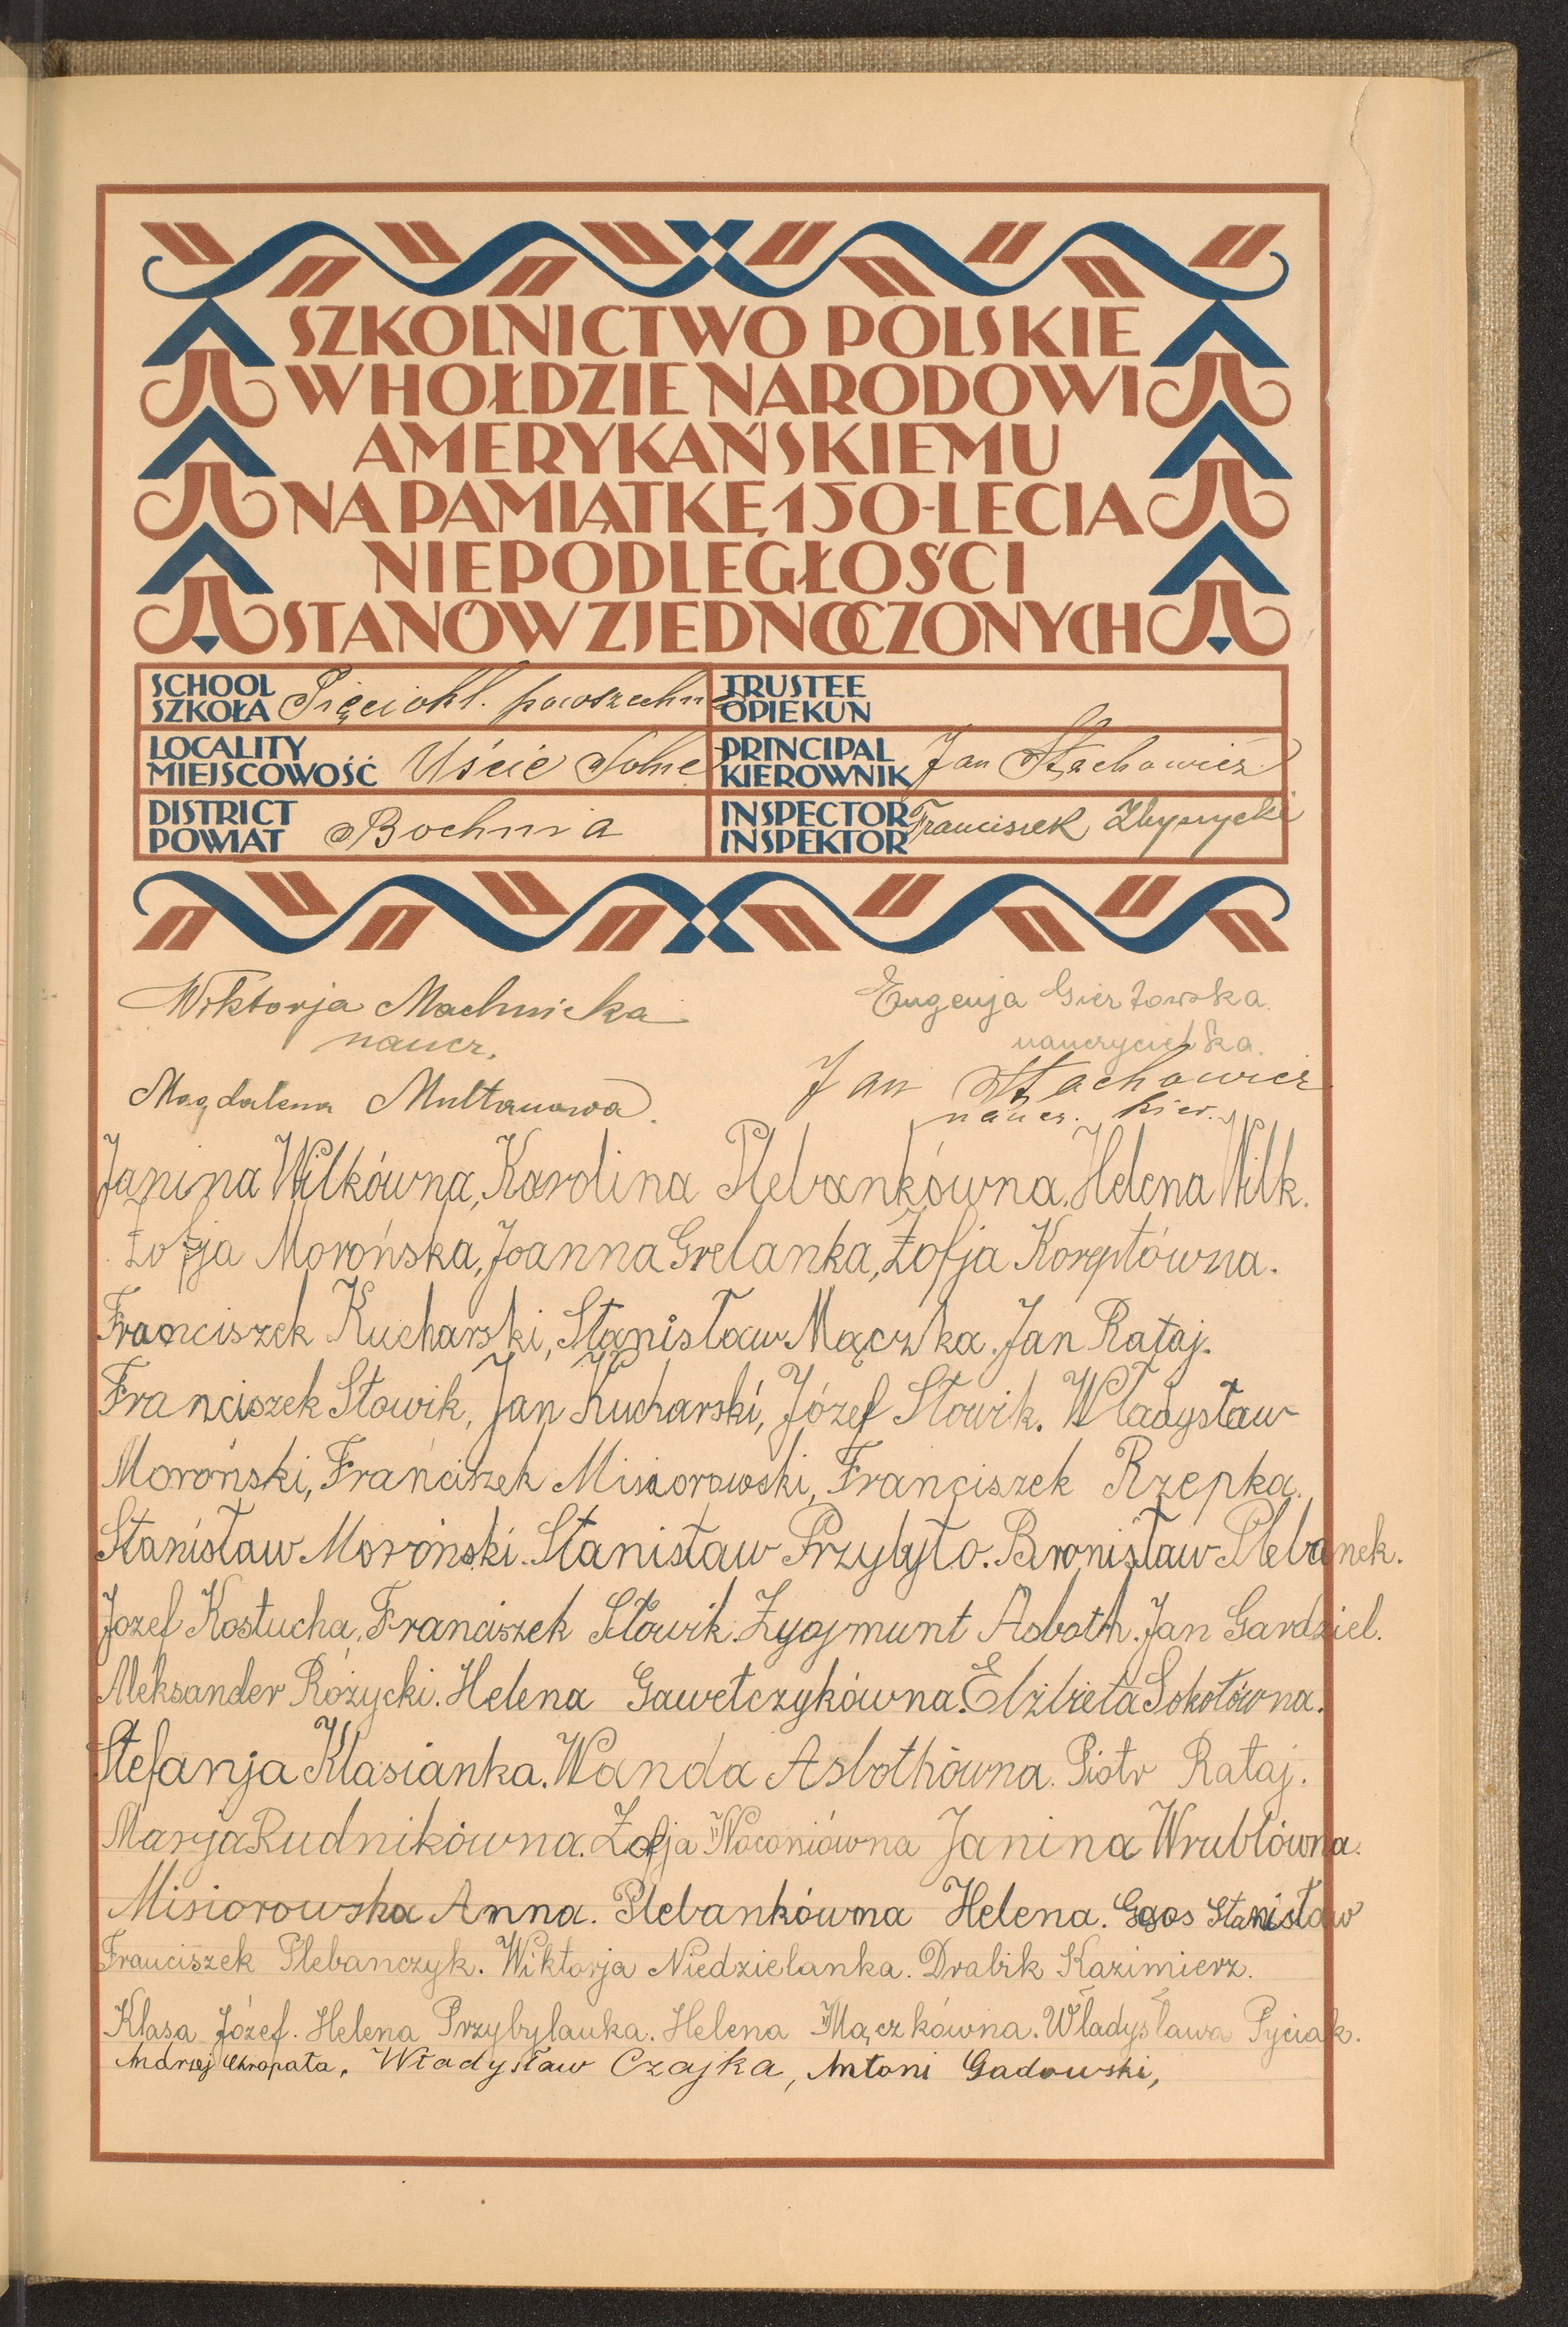 SZKOLNICTWO POLSKIE
W HOŁDZIE NARODOWI
AMERYKAŃSKIEMU
NA PAMIĄTKĘ 150-LECIA
NIEPODLEGŁOŚCI
STANÓW ZJEDNOCZONYCH
SCHOOL
SZKOŁA Pięciokl. powszechna
TRUSTEE
OPIEKUN
LOCALITY
MIEJSCOWOŚĆ Uście Solne
PRINCIPAL
KIEROWNIK Jan Stachowicz
DISTRICT
POWIAT Bochnia
INSPECTOR
INSPEKTOR Franciszek
Wiktorja Machnicka
naucz.
Eugenja Gierżowska.
nauczycielka.
Magdalena Multanowa.
Jan Stachowicz
naucz. kier.
Janina Wilkówna, Karolina Plebankówna. Helena Wilk.
Zofja Morońska, Joanna Grelanka, Zofja Koreptówna.
Franciszek Kucharski, Stanisław Mączka. Jan Rataj.
Franciszek Słowik, Jan Kucharski, Józef Słowik. Władysław
Moroński, Franciszek Misiorowski, Franciszek Rzepka.
Stanisław Moroński. Stanisław Przybyło. Bronisław Plebanek.
Jozef Kostucha, Franciszek Słowik. Zygmunt Asboth. Jan Gardziel.
Aleksander Różycki. Helena Gawełczykówna. Elżbieta Sokołówna.
Stefanja Klasianka. Wanda Asbothówna. Piotr Rataj.
Marja Rudnikówna. Zofja Woconiówna Janina Wrublówna.
Misiorowska Anna. Plebankówna Helena. Gąos Stanisław
Franciszek Plebanczyk. Wiktorja Niedzielanka. Drabik Kazimierz.
Klasa Józef. Helena Przybylanka. Helena Mączkówna. Władysława Pyciak.
Andrzej Chrapata, Władysław Czajka, Antoni Gadowski,